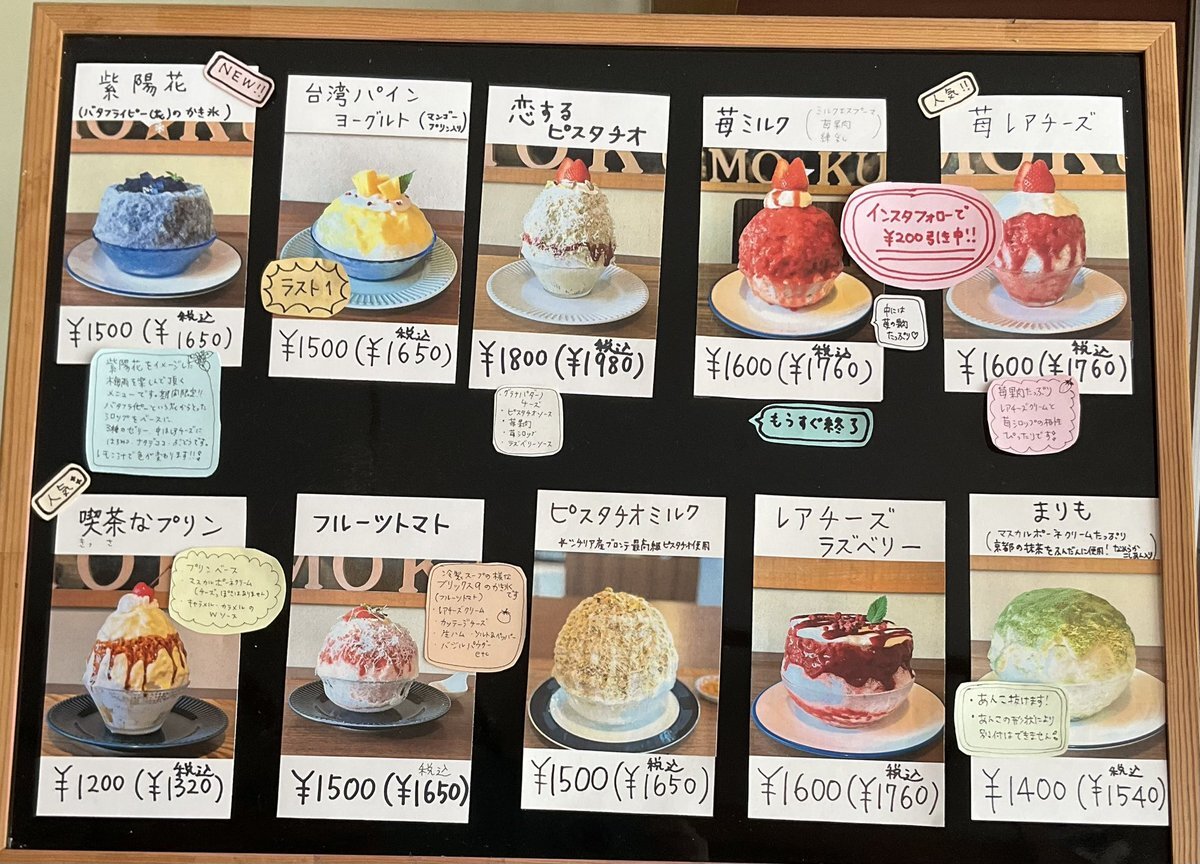 紫陽花
(バタフライピー(花)のかき氷)
NEW!!
¥1500(¥1650)
税込
紫陽花をイメージした
梅雨を楽しんで頂く
メニューです。期間限定!!
バタフライピーという花からとった
シロップをベースに
3種のゼリー、中はレアチーズに
はちみつ・ナタデココ・ぶどうです。
レモンつけで色が変わります!!
台湾パイン
ヨーグルト(マンゴー
プリン入り)
ラスト1
¥1500(¥1650)
税込
恋する
ピスタチオ
¥1800(¥1980)
税込
・グラナパダーノ
チーズ
・ピスタチオソース
・苺果肉
・苺シロップ
・ラズベリーソース
苺ミルク
(ミルクエスプーマ
苺果肉
練乳)
¥1600(¥1760)
税込
中には
苺の果肉
たっぷり♡
もうすぐ終了
インスタフォローで
¥200引き中!!
人気!!
苺レアチーズ
¥1600(¥1760)
税込
苺果肉たっぷり
レアチーズクリームと
苺シロップの相性
ぴったりです。
人気
喫茶なプリン
きっさ
プリンベース
マスカルポーネクリーム
(チーズっぽくはありません)
キャラメル・カラメルの
Wソース
¥1200(¥1320)
税込
フルーツトマト
冷製スープの様な
ブリックス9のかき氷
です
(フルーツトマト)
・レアチーズクリーム
・カッテージチーズ
・生ハム・ソルト&ペッパー
・バジルパウダー
etc
¥1500(¥1650)
税込
ピスタチオミルク
*シチリア産ブロンテ最高級ピスタチオ使用
¥1500(¥1650)
税込
レアチーズ
ラズベリー
¥1600(¥1760)
税込
まりも
(マスカルポーネクリームたっぷり
京都の抹茶をふんだんに使用!なめらか
こしあん入り)
・あんこ抜けます!
・あんこの形状により
別付はできません。
¥1400(¥1540)
税込